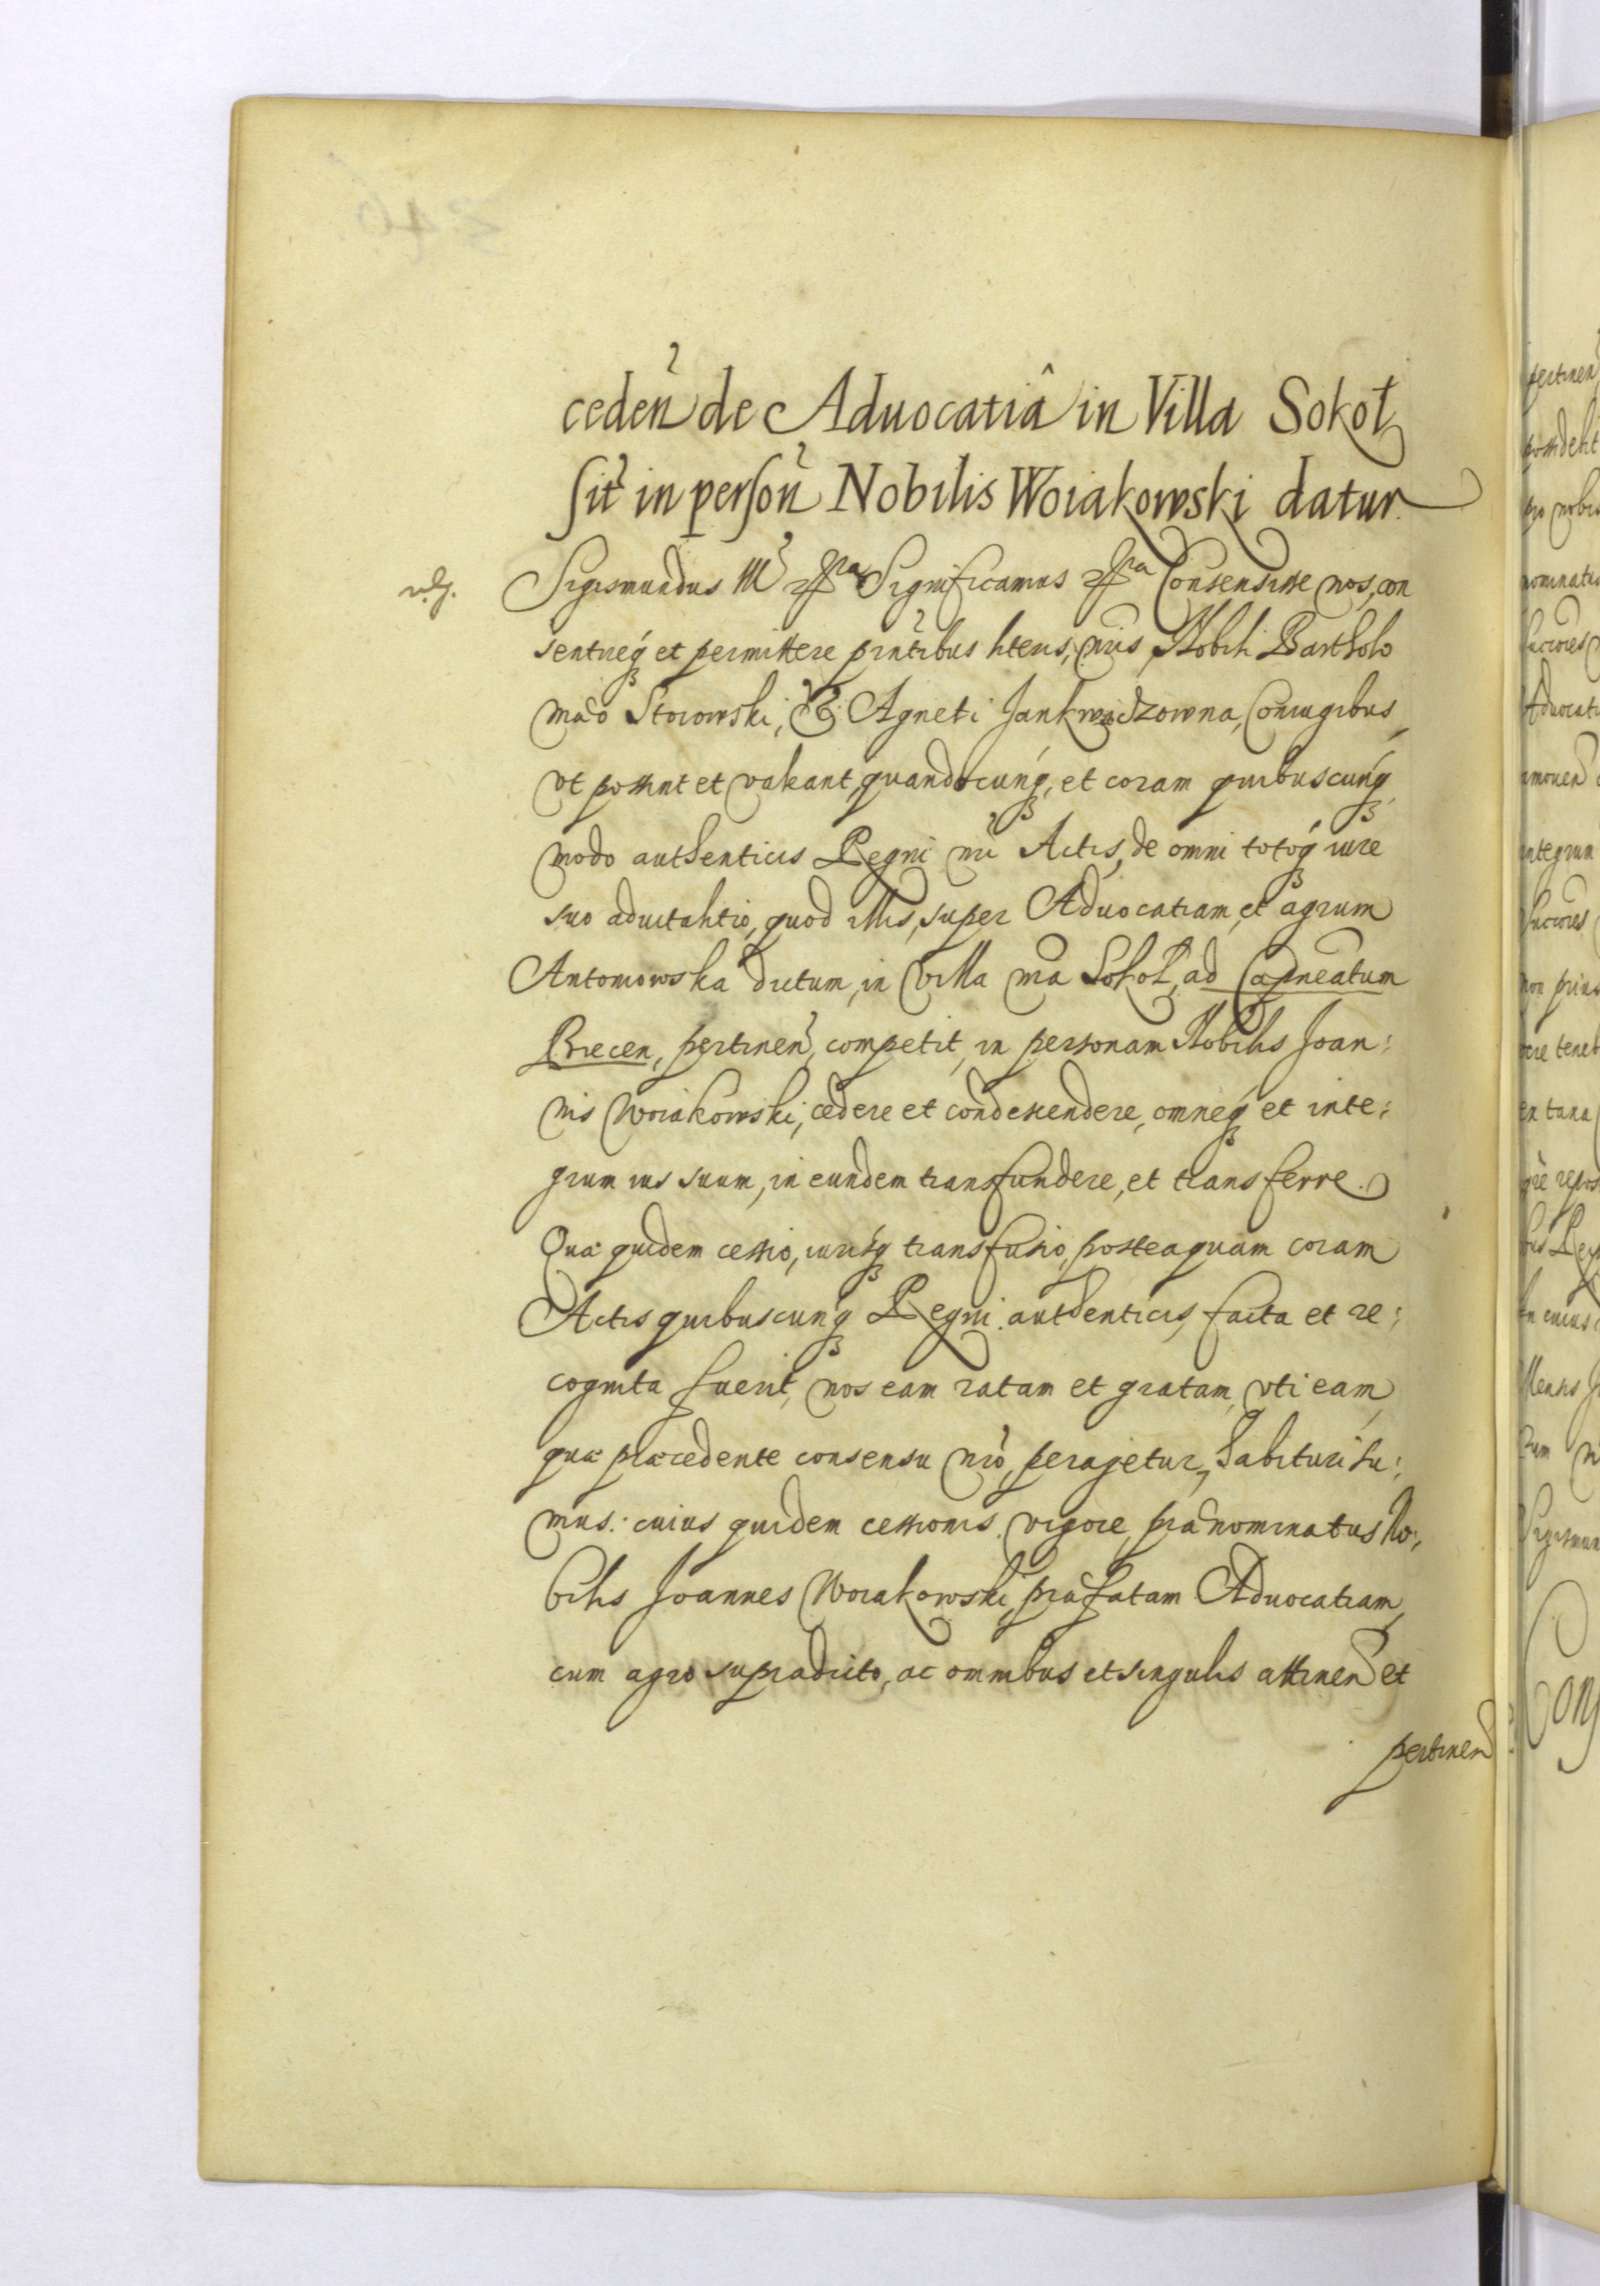 cedeñ de Aduocatiâ in Villa Sokoł
sit̃ in persoñ Nobilis Woiakowski datur
Sigismundus III Significamus Consensisse nos, con
sentireq́ꝫ et permittere pñtibus literis, nris Nobili Bartholo
mæo Storowski, & Agneti Jankwidzowna, Coniugibus,
vt possint et valeant, quandocunq́ꝫ, et coram quibuscunq́ꝫ
modo authenticis Regni nri Actis, de omni totoq́ꝫ iure
suo aduitalitio, quod illis, super Aduocatiam, et agrum
Antoniowska dictum, in Villa nra Sokoł, ad Capneatum
Biecen, pertineñ, competit, in personam Nobilis Joan:
nis Woiakowski, cedere et condescendere, omneq́ꝫ et inte:
grum ius suum, in eundem transfundere, et transferre.
Quæ quidem cessio, iurisq́ꝫ transfusio, posteaquam coram
Actis quibuscunq́ꝫ Regni authenticis, facta et re:
cognita fuerit, nos eam ratam et gratam, vti eam,
quæ præcedente consensu nrõ, peragetur, habituri su:
mus: cuius quidem cessionis vigore, prænominatus No:
bilis Joannes Woiakowski, præfatam Aduocatiam,
cum agro supradicto, ac omnibus et singulis attineñ et
pertineñ